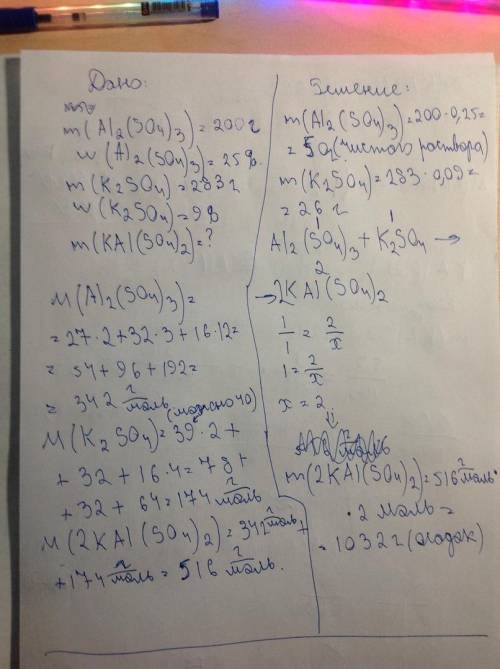 Дано:
m(Al2(SO4)3)=200г
w(Al2(SO4)3)=25%.
m(K2SO4)=283г
w(K2SO4)=9%
m(KAl(SO4)2)=?
M(Al2(SO4)3)=
=27·2+32·3+16·12=
= 54+96+192=
= 342 г/моль (можно
M(K2SO4)=39·2+
+32+16·4=78+
+32+64=174 г/моль
M(2KAl(SO4)2)=342 г/моль+
+174 г/моль=516 г/моль.
Решение:
m(Al2(SO4)3)=200·0,25=
= 50г(чистого раствора)
m(K2SO4)=283·0,09=
= 26 г
1 1
Al2(SO4)3+K2SO4 →
2
→2KAl(SO4)2
1/1=2/x
1=2/x
x=2
m(2KAl(SO4)2)=516 г/моль·
·2 моль=
=1032г(осадок)